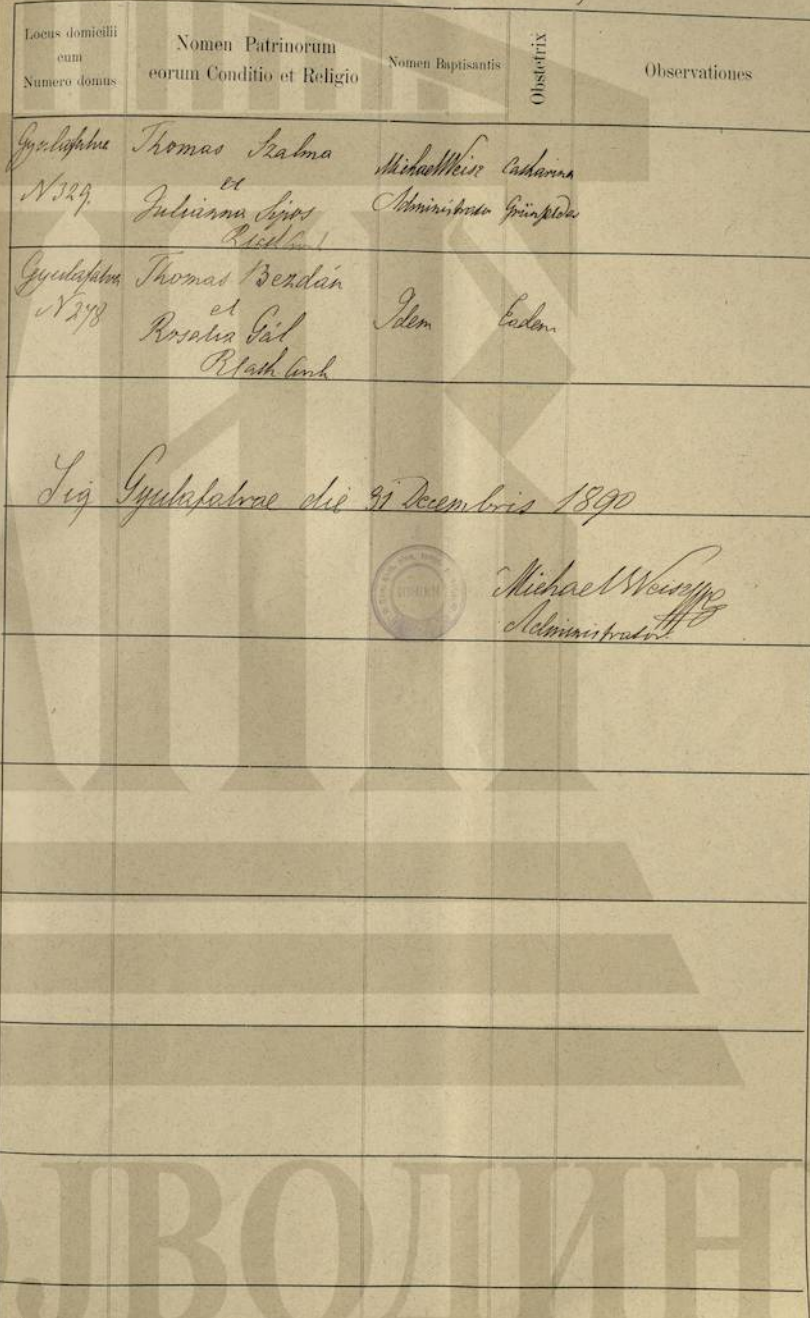 Locus domicilii
cum
Numero domus
Nomen Patrinorum
eorum Conditio et Religio
Nomen Baptisantis
Obstetrix
Observationes
Gyulafalva
N 329.
Thomas Szalma
et
Julianna Sipos
Michael Weisz
Administrator
Catharina
Gyulafalva
N 278
Thomas Bezdán
et
Rosalia Gál
Idem
Eadem
Sig Gyulafalvae die 31 Decembris 1890
Michael Weisz
Administrator